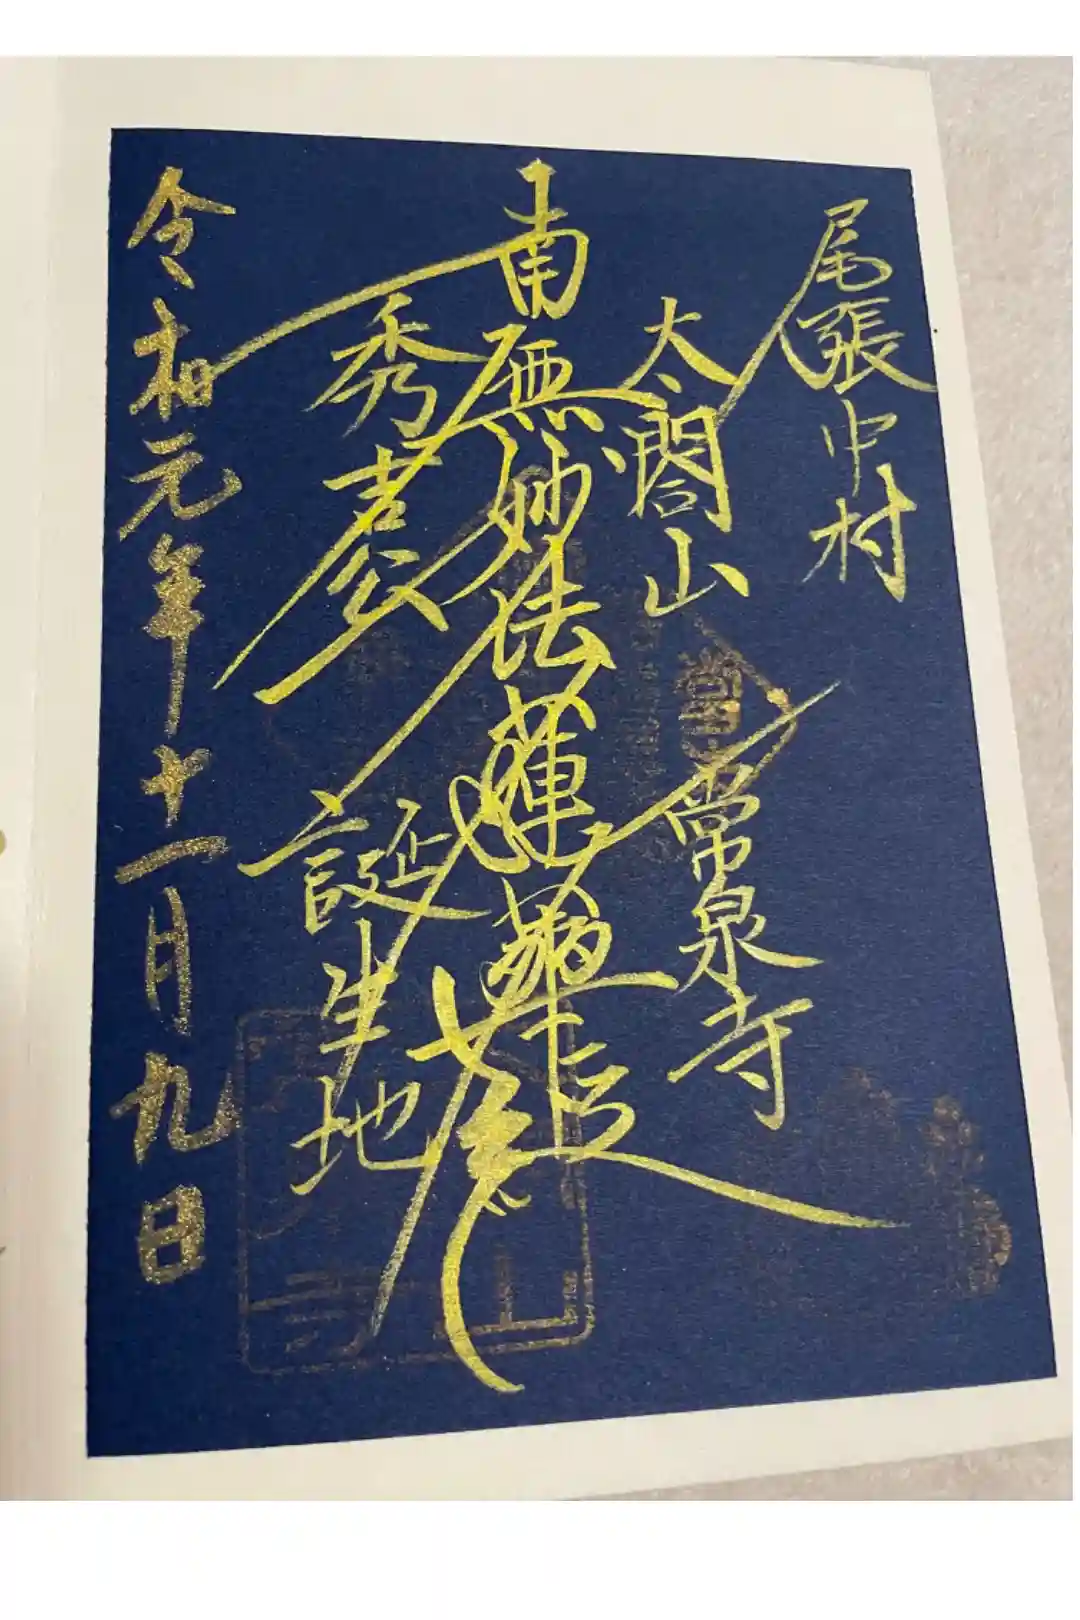 尾張中村
太閤山
常泉寺
南無妙法蓮華経
秀吉公
誕生地
令和元年十一月九日